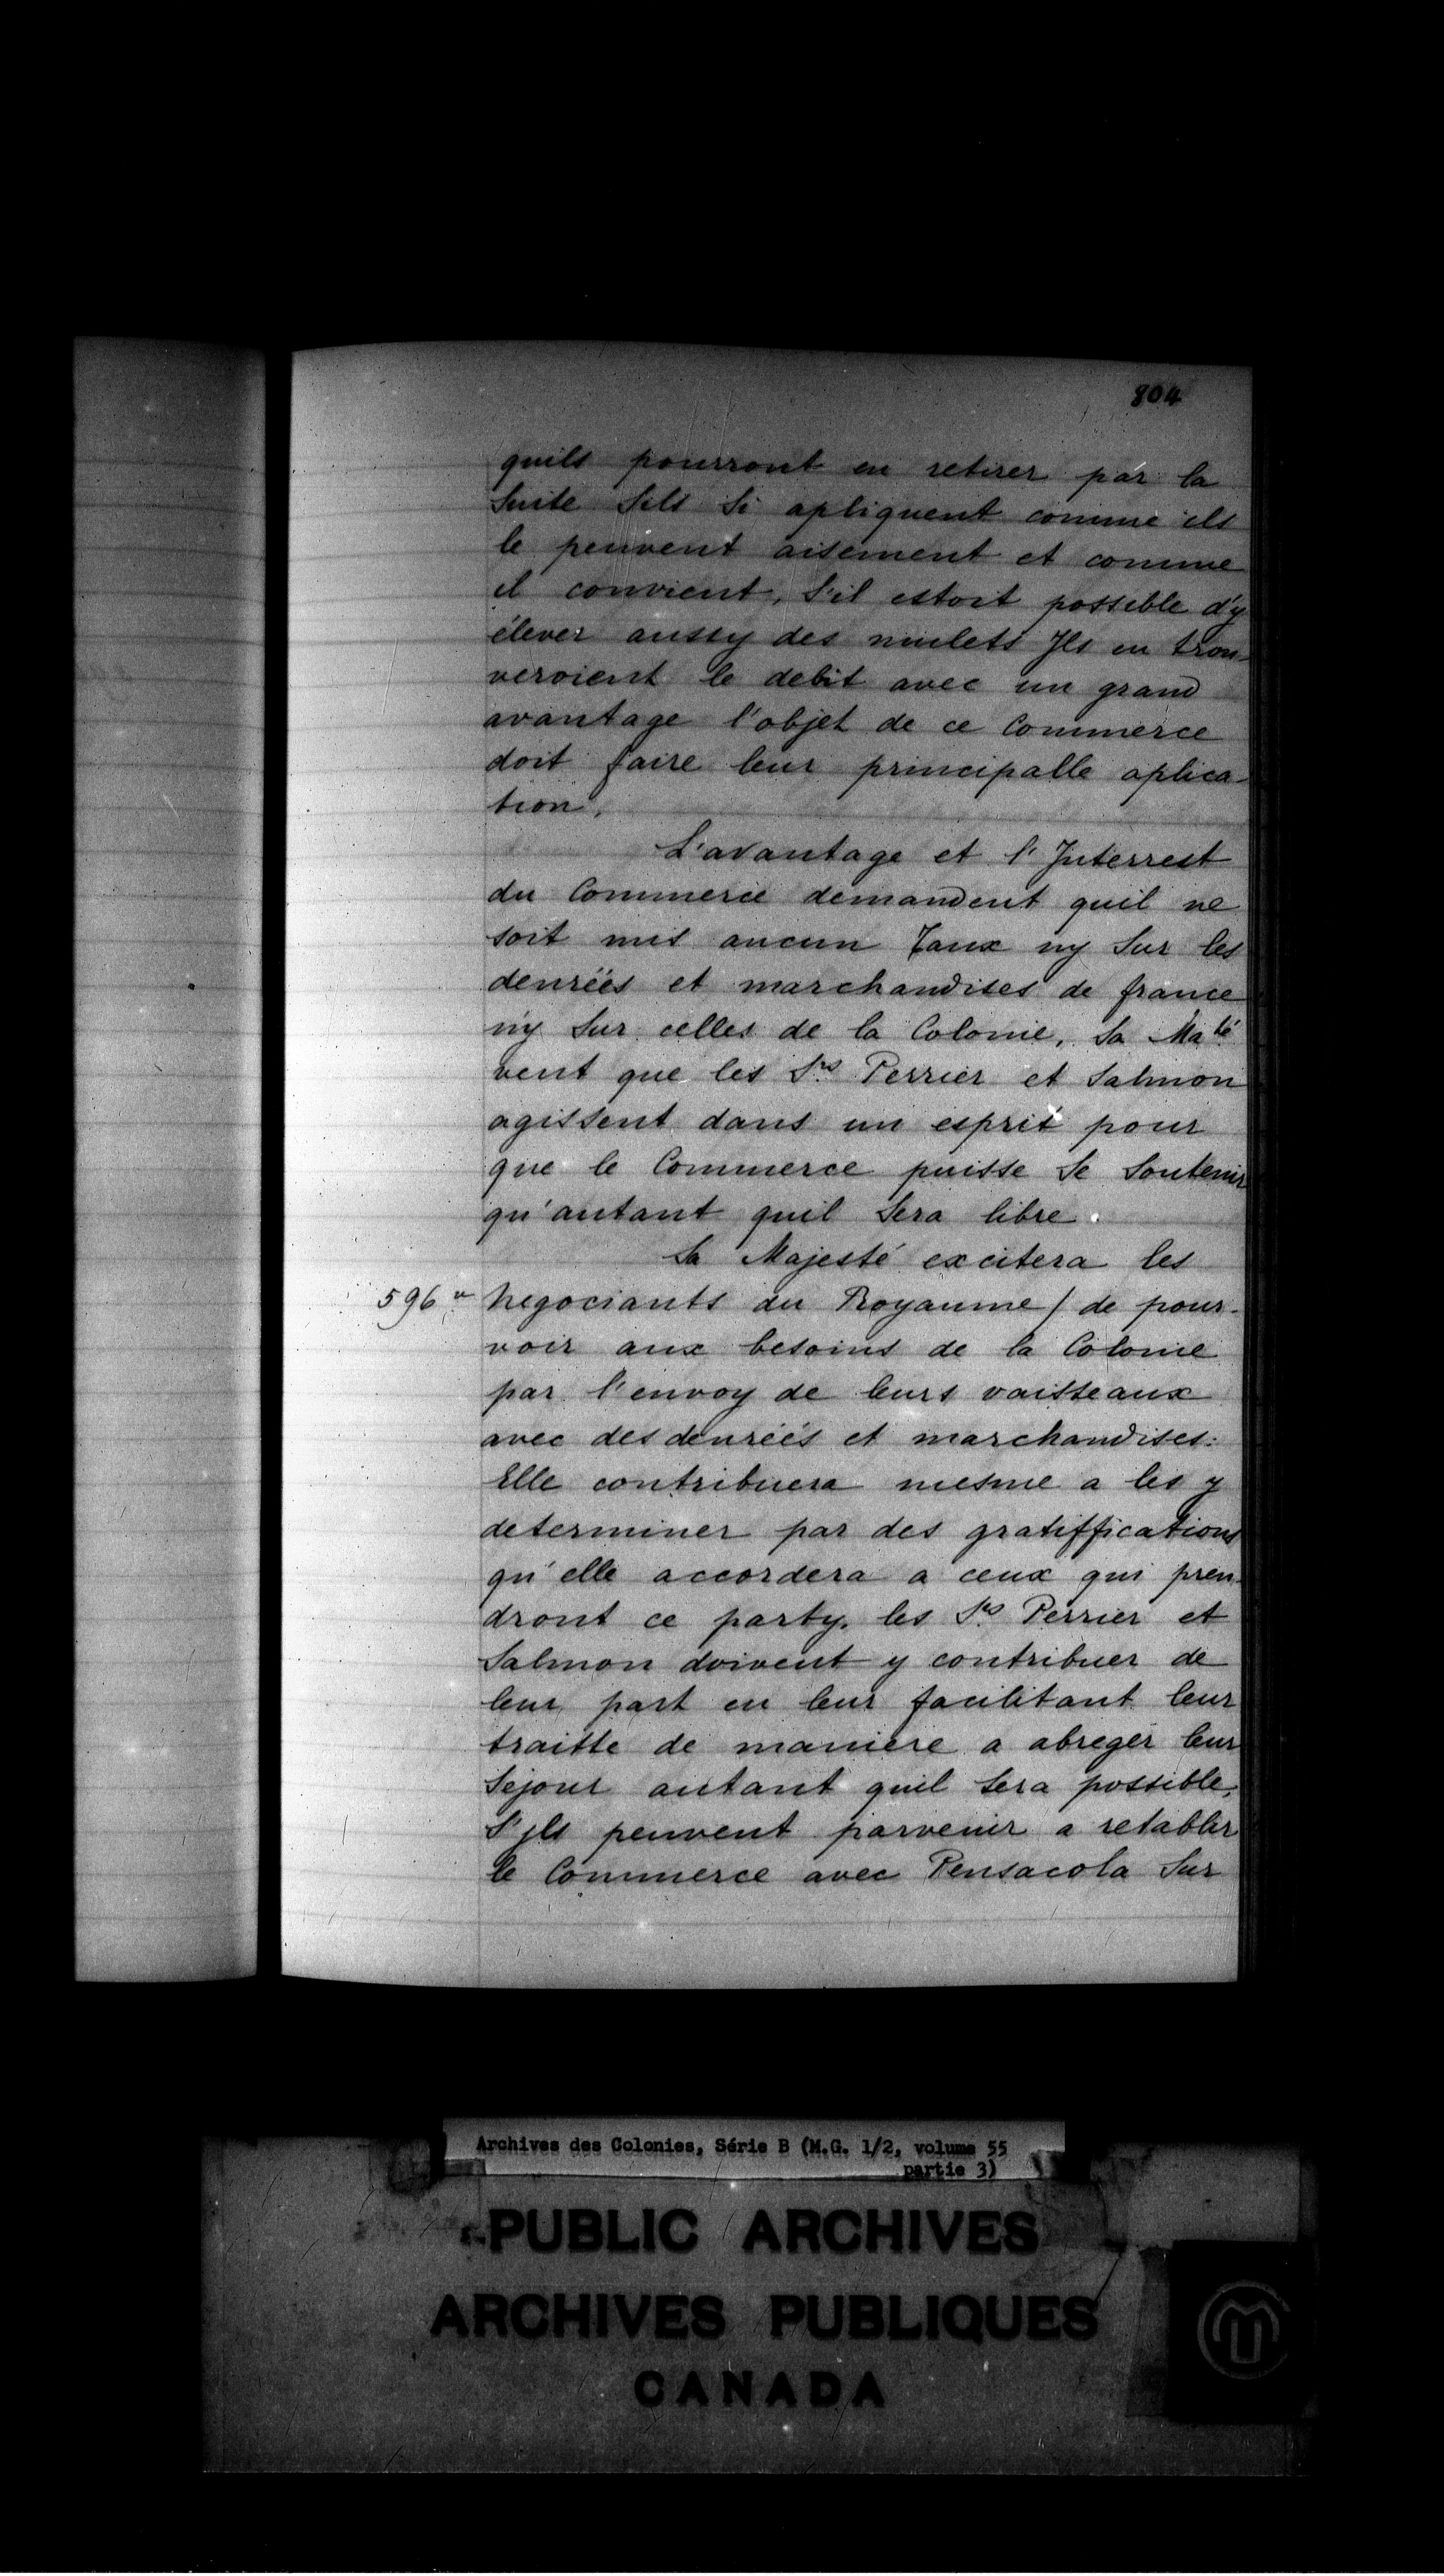 804
quils pourront en retirer par la
Suite Sils Si apliquent comme ils
le peuvent aisement et comme
il convient, S'il estoit possible d'y
élever aussy des mulets Ils en trou-
veroient le debit avec un grand
avantage l'objet de ce Commerce
doit faire leur principalle aplica-
tion.
L'avantage et l'Interrest
du Commerce demandent quil ne
soit mis aucun Taux ny Sur les
denrées et marchandises de france
ny Sur celles de la Colonie, Sa Maté
veut que les Srs Perrier et Salmon
agissent dans un esprit pour
que le Commerce puisse Se Soutenir
qu'autant quil Sera libre.
Sa Majesté excitera les
596 v. negociants du Royaume / de pour-
voir aux besoins de la Colonie
par l'envoy de leurs vaisseaux
avec des denrées et marchandises:
Elle contribuera mesme a les y
determiner par des gratiffications
qu'elle accordera a ceux qui pren-
dront ce party. les Srs Perrier et
Salmon doivent y contribuer de
leur part en leur facilitant leur
traitte de maniere a abreger leur
Sejour autant quil Sera possible,
S'ils peuvent parvenir a retablir
le Commerce avec Pensacola Sur
Archives des Colonies, Série B (M.G. 1/2, volume 55
partie 3)
PUBLIC ARCHIVES
ARCHIVES PUBLIQUES
CANADA